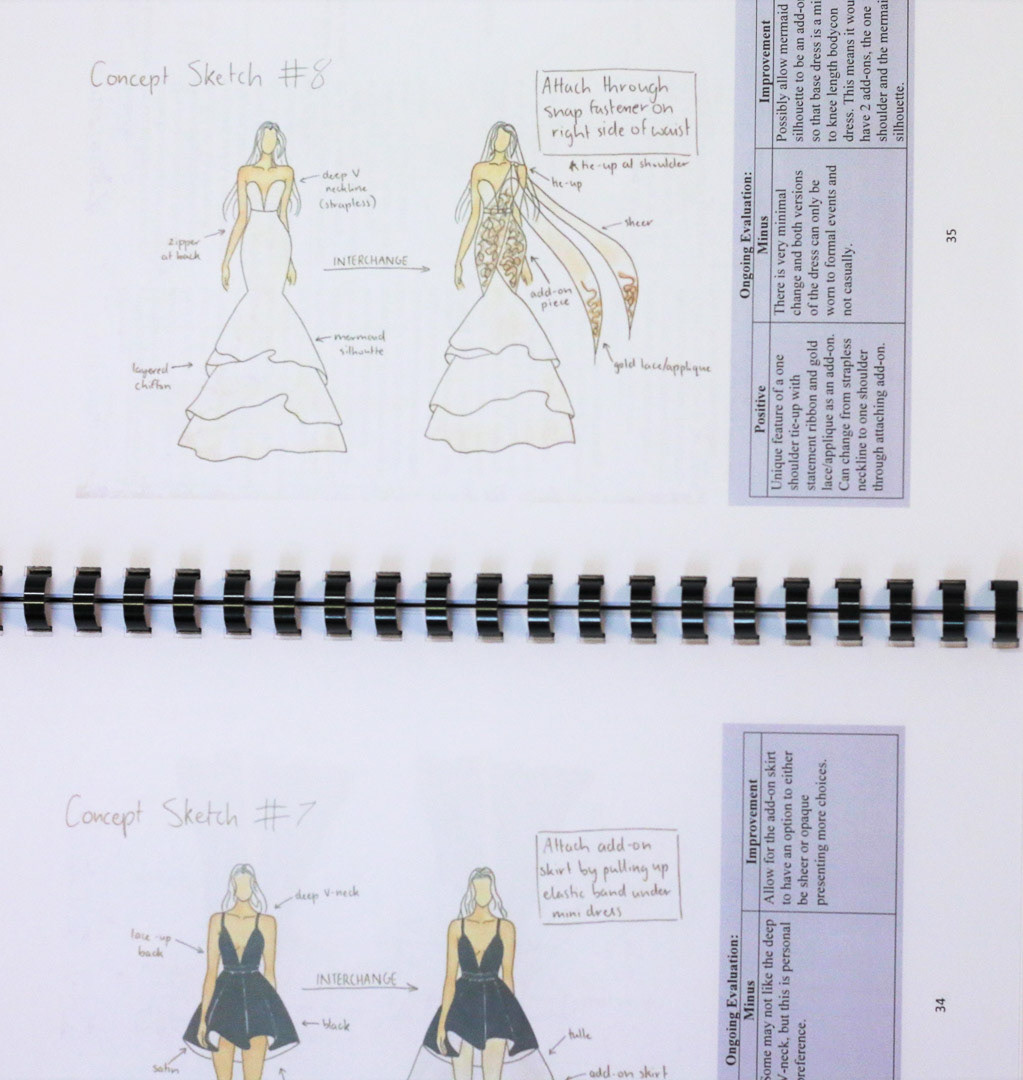 Concept Sketch #8
Attach through
snap fastener on
right side of waist
tie-up at shoulder
tie-up
deep V
neckline
(strapless)
sheer
zipper
at back
INTERCHANGE
add-on
piece
mermaid
silhoutte
layered
chiffon
gold lace/applique
Ongoing Evaluation:
Positive
Unique feature of a one
shoulder tie-up with
statement ribbon and gold
lace/applique as an add-on.
Can change from strapless
neckline to one shoulder
through attaching add-on.
Minus
There is very minimal
change and both versions
of the dress can only be
worn to formal events and
not casually.
Improvement
Possibly allow mermaid
silhouette to be an add-o
so that base dress is a mi
to knee length bodycon
dress. This means it wou
have 2 add-ons, the one
shoulder and the mermai
silhouette.
35
Concept Sketch #7
Attach add-on
skirt by pulling up
elastic band under
mini dress
deep V-neck
lace-up
back
INTERCHANGE
black
tulle
satin
add-on skirt
Ongoing Evaluation:
Minus
Some may not like the deep
V-neck, but this is personal
preference.
Improvement
Allow for the add-on skirt
to have an option to either
be sheer or opaque
presenting more choices.
34